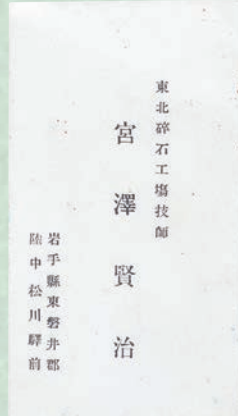 東北碎石工場技師
宮澤賢治
岩手縣東磐井郡
陸中松川驛前